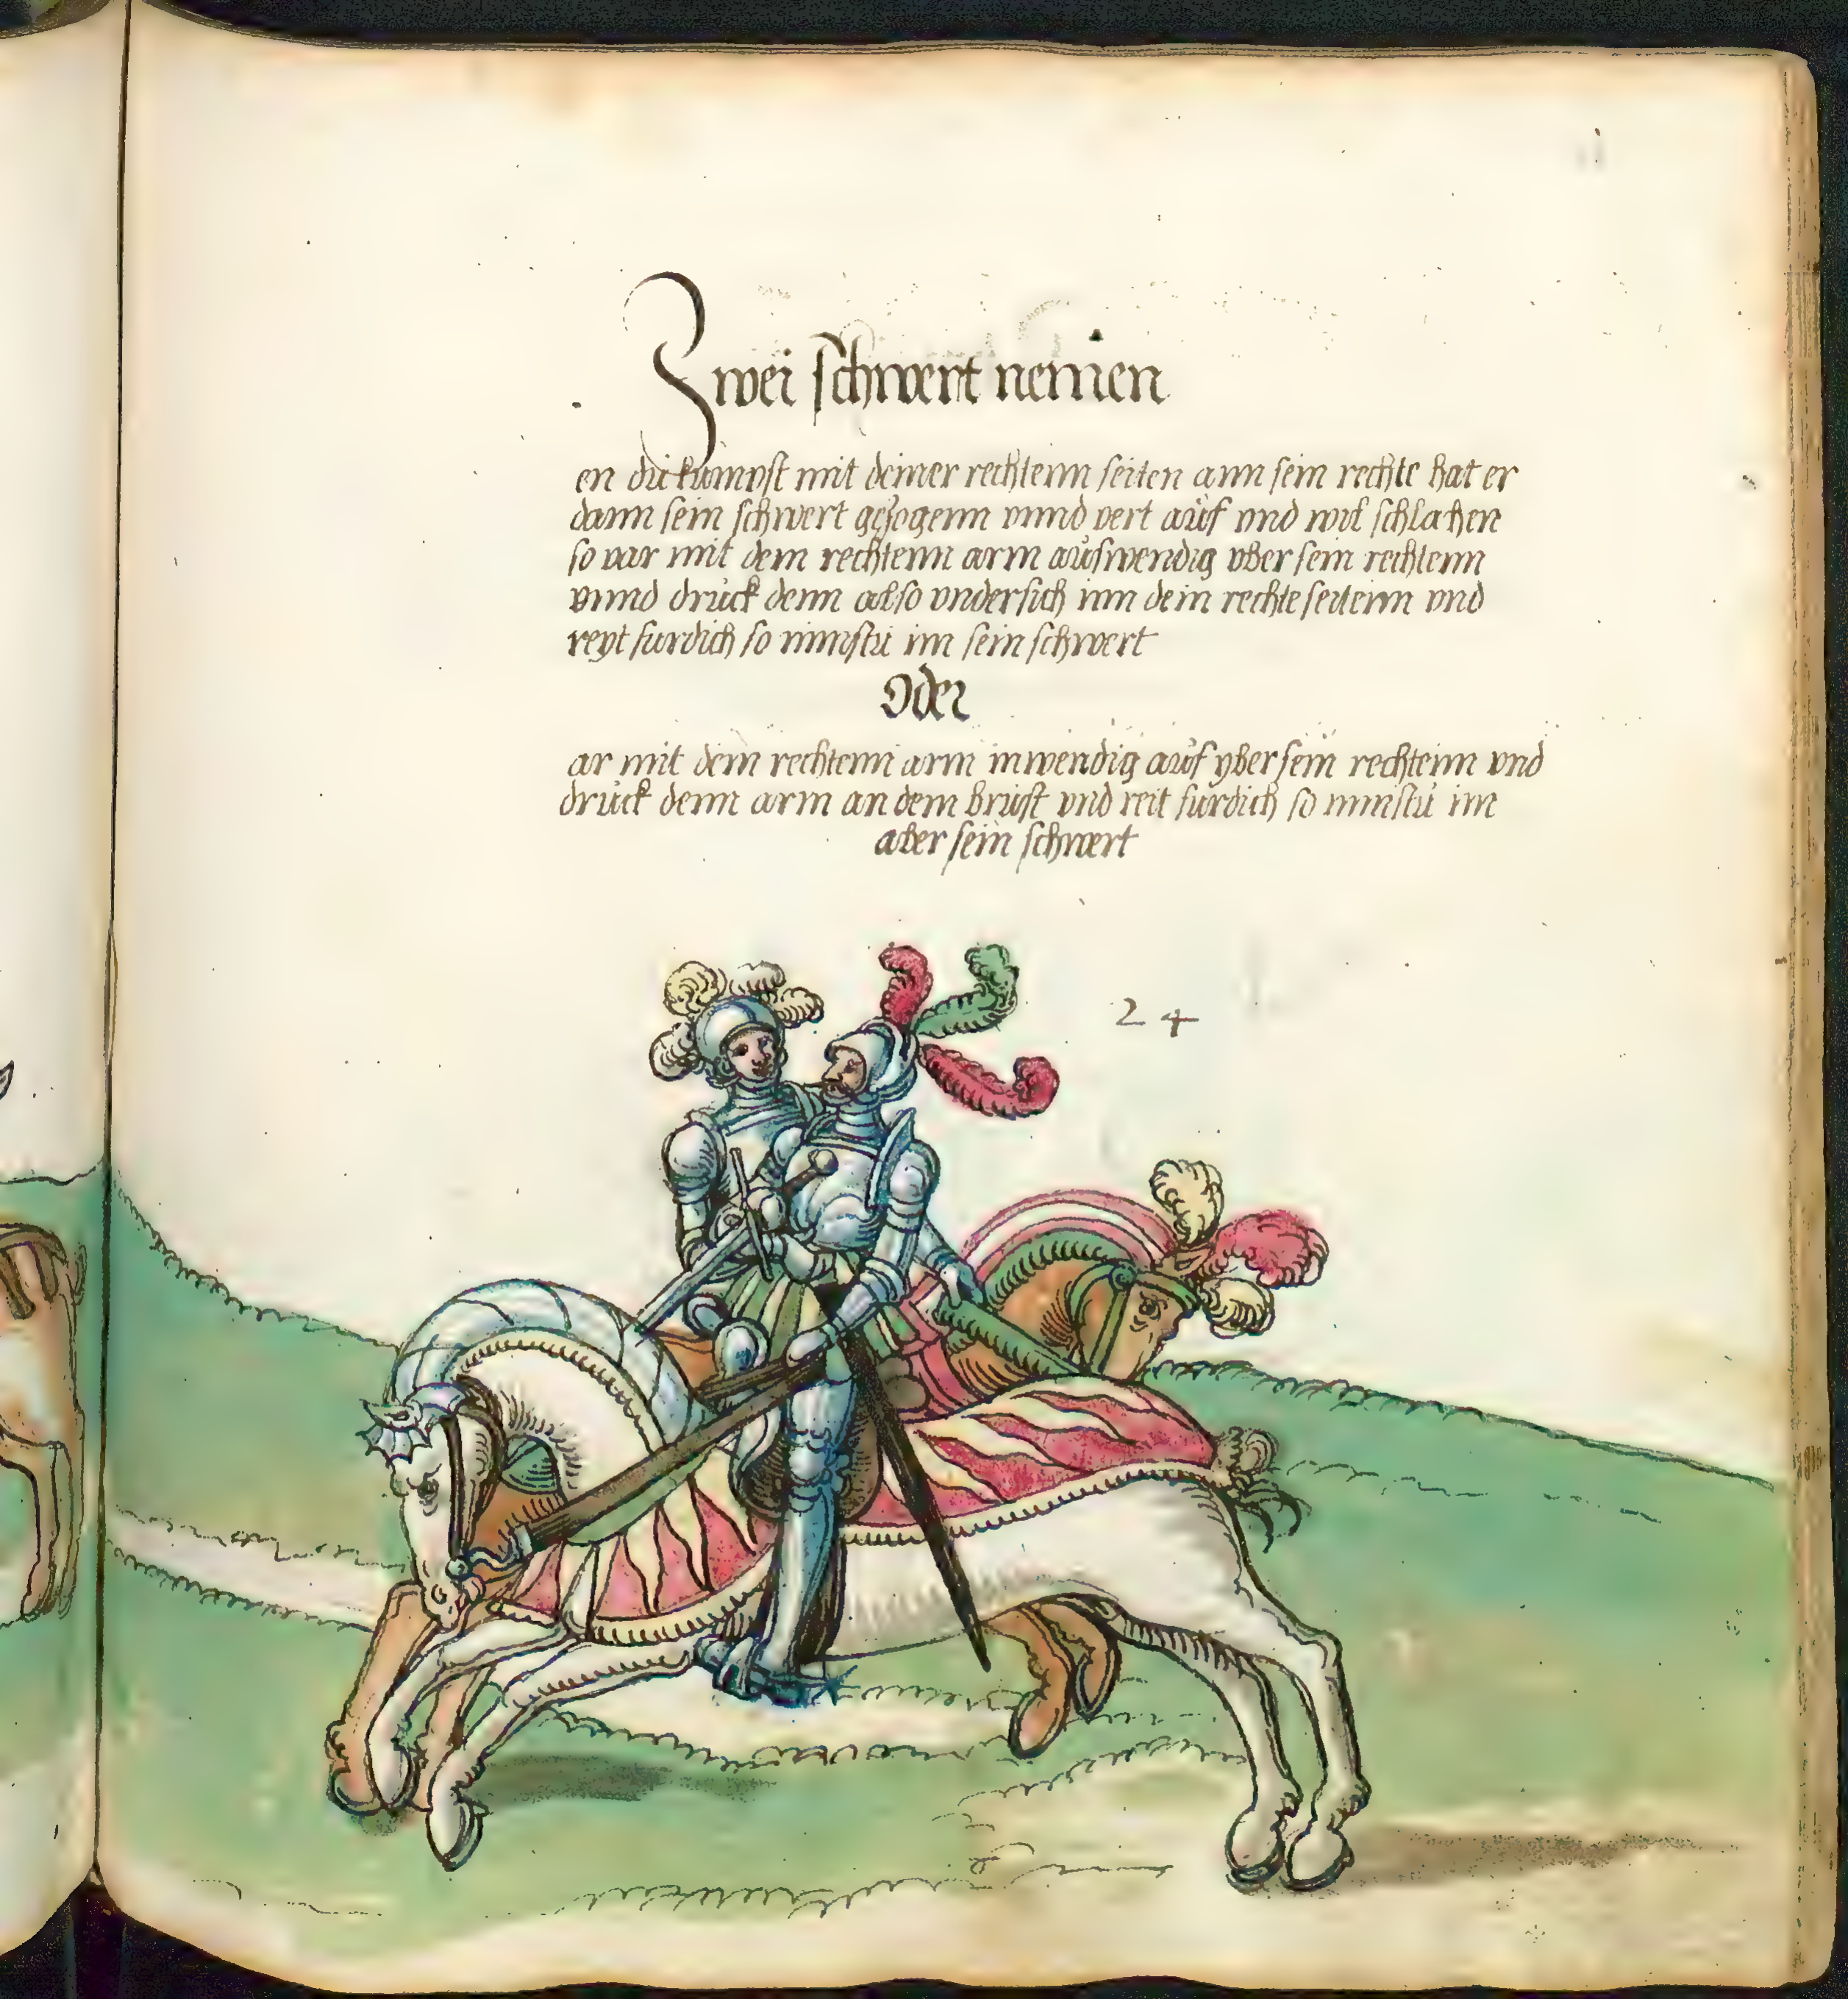 Zwei schwert nemen
en du kumpst mit deiner rechtenn seiten ann sein rechte hat er
dann sein schwert gezogenn vnnd vert auf vnd wil schlahen
so var mit dem rechtenn arm auswendig vber sein rechtenn
vnnd druck denn also vndersich inn dein rechte seitenn vnd
reyt furdich so nimstu im sein schwert
Oder
ar mit dem rechtenn arm inwendig auf vber sein rechtenn vnd
druck denn arm an dem brust vnd reit furdich so nimstu im
aber sein schwert
24